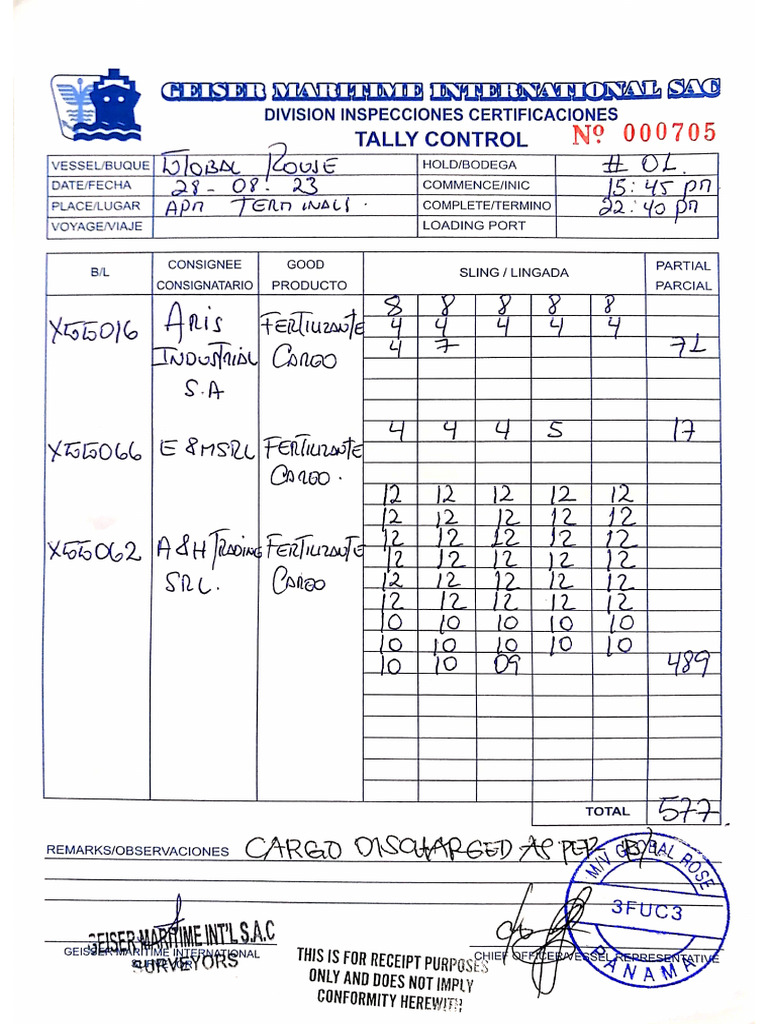 GEISER MARITIME INTERNATIONAL SAC
DIVISION INSPECCIONES CERTIFICACIONES
TALLY CONTROL Nº 000705
VESSEL/BUQUE Global Rouse HOLD/BODEGA # 01.
DATE/FECHA 28-08.23 COMMENCE/INIC 15:45 pm
PLACE/LUGAR APM TERMINALS. COMPLETE/TERMINO 22:40 pm
VOYAGE/VIAJE LOADING PORT
B/L CONSIGNEE CONSIGNATARIO GOOD PRODUCTO SLING / LINGADA PARTIAL PARCIAL
8 8 8 8 8
X55016 ARIS FERTILIZANTE 4 4 4 4 4
INDUSTRIAL CARGO 4 7 71
S.A
4 4 4 5 17
X55066 E &MSRL FERTILIZANTE
CARGO.
12 12 12 12 12
12 12 12 12 12
12 12 12 12 12
X55062 A &H TRADING FERTILIZANTE 12 12 12 12 12
SRL. CARGO 12 12 12 12 12
12 12 12 12 12
10 10 10 10 10
10 10 10 10 10
10 10 09 489
TOTAL 577.
REMARKS/OBSERVACIONES CARGO DISCHARGED AS PER B/L
M/V GLOBAL ROSE
3FUC3
PANAMA
GEISER MARITIME INT'L S.A.C
SURVEYORS
GEISSER MARITIME INTERNATIONAL
SURVEYOR
THIS IS FOR RECEIPT PURPOSES
ONLY AND DOES NOT IMPLY
CONFORMITY HEREWITH
CHIEF OFFICER/VESSEL REPRESENTATIVE